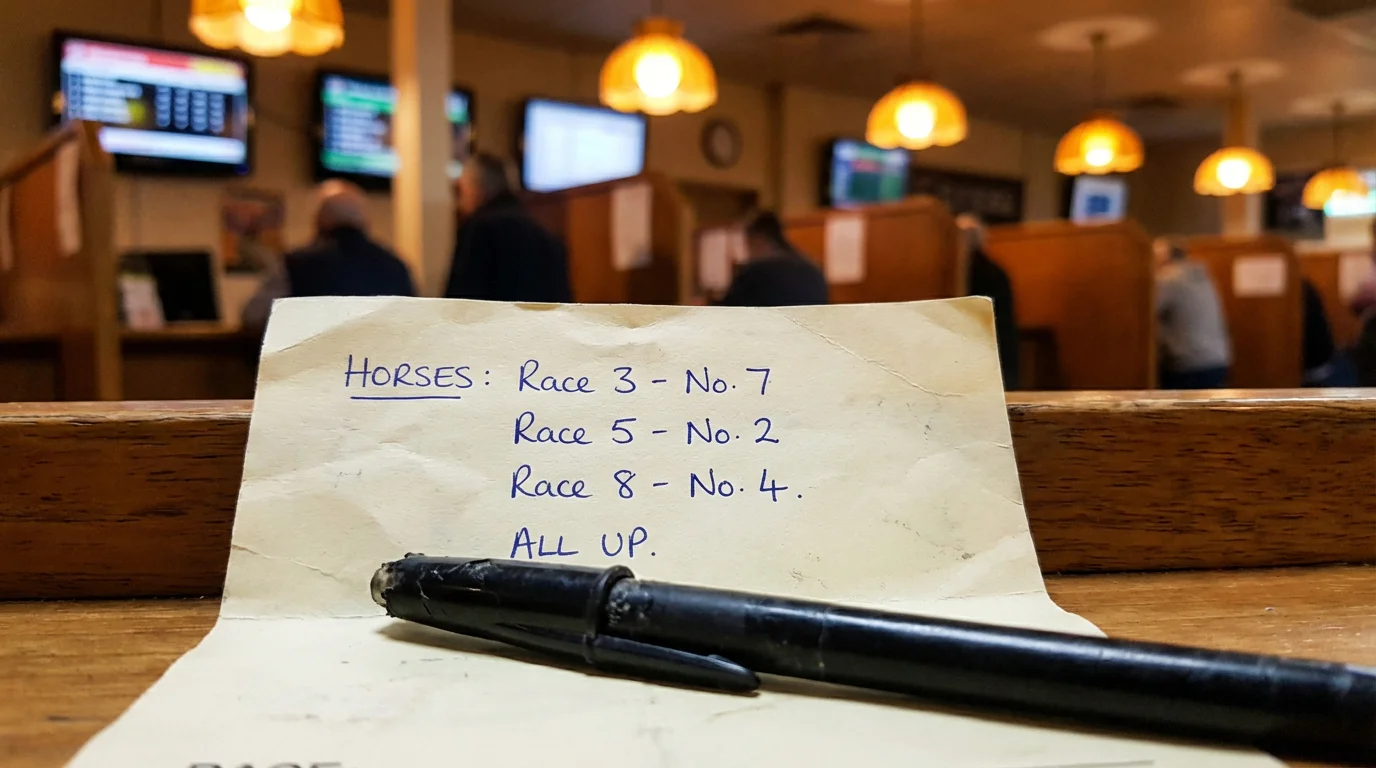 HORSES: Race 3 - No. 7
Race 5 - No. 2
Race 8 - No. 4.
ALL UP.